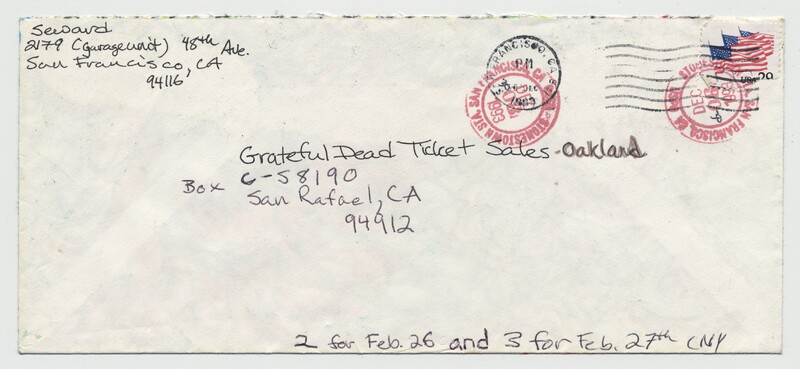 Seward
2179 (garage unit) 48th Ave.
San Francisco, CA
94116
SAN FRANCISCO, CA
PM
1993
STONESTOWN STA. SAN FRANCISCO, CA
DEC
1993
USA 29
STONESTOWN STA. SAN FRANCISCO, CA
DEC
Grateful Dead Ticket Sales - Oakland
Box C-S8190
San Rafael, CA
94912
2 for Feb. 26 and 3 for Feb. 27th CNY